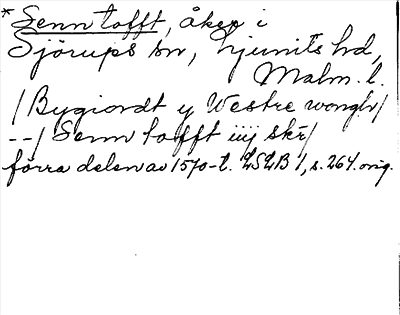 *Senn tofft, åker i
Sjörups sn, Ljunits hd,
Malm. l.
/Bygiordt y Westre wongh/
--/ Senn tofft iiij skr/
förra delen av 1570-t. LSLB 1, s. 264. orig.